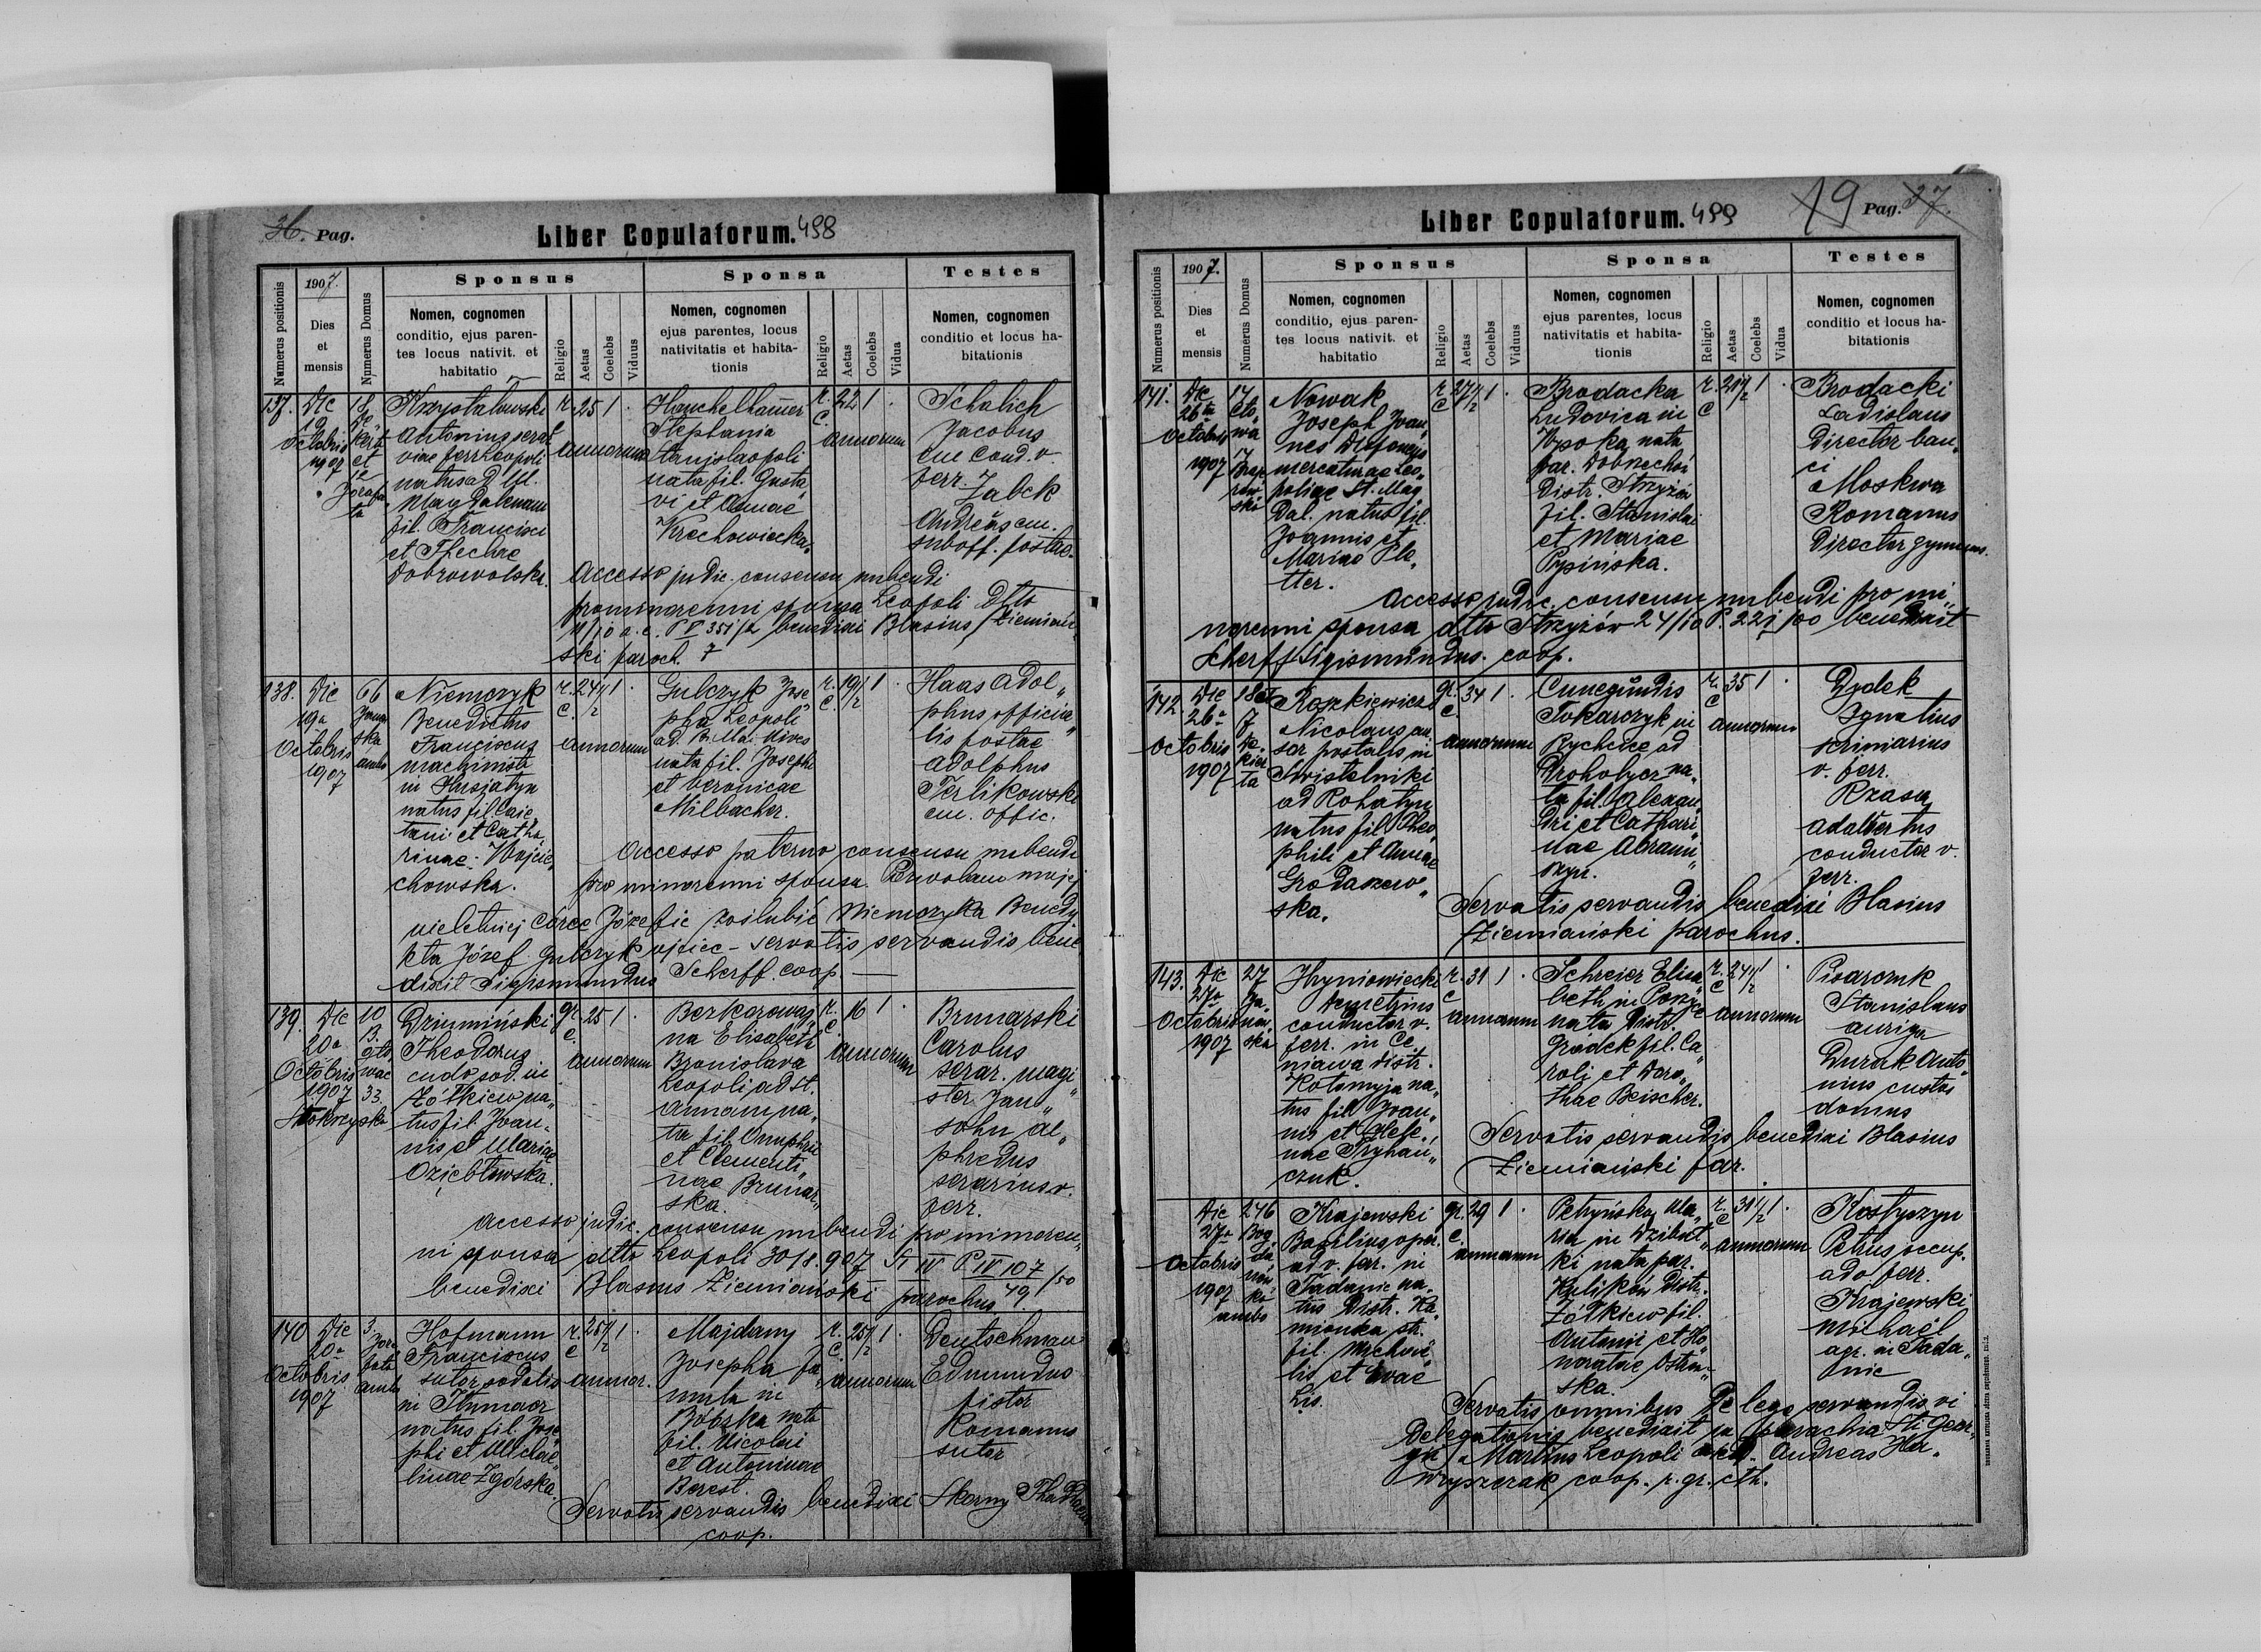 36. Pag.
Liber Copulatorum. 498
Numerus positionis
1907.
Dies
et
mensis
Numerus Domus
Sponsus
Nomen, cognomen
conditio, ejus paren-
tes locus nativit. et
habitatio
Religio
Aetas
Coelebs
Viduus
Sponsa
Nomen, cognomen
ejus parentes, locus
nativitatis et habita-
tionis
Religio
Aetas
Coelebs
Vidua
Testes
Nomen, cognomen
conditio et locus ha-
bitationis
137.
Die
Octobris
1907
18
et
12
Józafa
ta
Krzyształowski
Antonius
viae ferr Leopoli
natus ad
Magdalenam
fil. Francisci
et Theclae
Dobrowolska.
r.
25
1
.
annorum
Stephania
nata fil. Gusta
vi et Annae
Krechowiecka.
r.
c.
22
1
annorum
Schalich
Jacobus
em cond. v.
ferr.
Ząbek
Andreas em.
suboff. postae.
Accesso judic. consensu nubendi
pro minorenni sponsa Leopoli dtto
benedixi Blasius Ziemiań
ski paroch.
138.
Die
19a
Octobris
1907
66
Janow
ska
ambo
Niemczyk
Benedictus
Franciscus
machinista
in Husiatyn
natus fil. Caje,
tani et Catha
rinae Wojcie,
chowska.
r.
c.
24 1/2
1
.
annorum
Gulczyk Jose
pha Leopoli
ad B. Ma. Nives
nata fil. Josephi
et Veronicae
Milbacher.
r.
c.
19 1/2
1
.
Haas Adol„
phus officia„
lis postae
Adolphus
Terlikowski
em. offic.
Accesso paterno consensu nubendi
pro minorenni sponsa. Pozwalam mojej
nieletniej córce Józefie zaślubić Niemczyka Benedy
kta Józef Gulczyk ojciec – servatis servandis bene
dixit Sigismundus Scherff. coop. —
139.
Die
20a
Octobris
1907
10
B.
Gło
wac
33.
Dziumiński
Theodorus
sod. in
Żółkiew na„
tus fil. Joan„
nis et Mariae
Oziębłowska.
gr.
c.
25
1
.
annorum
na Elisabeth
Bronislava
Leopoli ad St.
Annam na„
ta fil. Onuphrii
et Clementi„
nae Brunar„
ska.
r.
c.
16
1
.
annorum
Brunarski
Carolus
serar. magi„
ster. Jan„
sohn Al„
phredus
serarius v.
ferr.
Accesso judic. consensu nubendi pro minoren„
ni sponsa dtto Leopoli 30/8. 907 P. IV 107
benedixi Blasius Ziemiański parochus 49/50
140
Die
20a
Octobris
1907
3.
Joza
fata
ambo
Hofmann
Franciscus
sutor sodalis
in Tłumacz
natus fil. Jose
phi et Michae
linae Zgórska.
r.
c
25 1/2
1
.
annor.
Majdany
Josepha fa„
mula in
Bóbrka nata
fil. Nicolai
et Antoninae
Berest.
r.
c.
25 1/2
1
.
annorum
Deutschman
Edmundus
pistor
Romanus
sutor
Servatis servandis benedixi Skarny Thaddaeus
coop.
Liber Copulatorum. 499
19 Pag. 37.
Numerus positionis
1907.
Dies
et
mensis
Numerus Domus
Sponsus
Nomen, cognomen
conditio, ejus paren-
tes locus nativit. et
habitatio
Religio
Aetas
Coelebs
Viduus
Sponsa
Nomen, cognomen
ejus parentes, locus
nativitatis et habita-
tionis
Religio
Aetas
Coelebs
Vidua
Testes
Nomen, cognomen
conditio et locus ha-
bitationis
141.
Die
26a
Octobris
1907
17
Nowak
Joseph Joan„
nes
mercaturae Leo„
poli ae St. Mag
dal. natus fil.
Joannis et
Mariae Pla„
tter.
r.
c
27 1/2
1
.
Brodacka
Ludovica in
nata
par. Dobrzechów
Distr. Strzyżów
fil. Stanislai
et Mariae
Pysińska.
r.
c
1
.
Brodacki
Ladislaus
Director ban„
ci
Moskwa
Romanus
Director gymnas.
Accesso judic. consensu nubendi pro mi„
norenni sponsa dtto Strzyżów 24/10 P. 221/00 benedixit
Scherff Sigismundus. coop.
142.
Die
26a
Octobris
1907
Roszkiewicz
Nicolaus cur
sor postalis in
Świstelniki
ad Rohatyn
natus fil. Theo
phili et Annae
Grodaszew„
ska.
gr.
c.
34
1
.
annorum
Cunegundis
Tokarczyk in
Rychcice ad
Drohobycz na„
ta fil. Alexan„
dri et Cathari„
nae Abram„
czyn.
r.
c
35
1
.
annorum
Dydek
Ignatius
scriniarius
v. ferr.
Rząsa
Adalbertus
conductor v.
ferr.
Servatis servandis benedixi Blasius
Ziemiański parochus.
143.
Die
27a
Octobris
1907
27
Ja„
now„
ska
Hryniowiecki
Demetrius
conductor v.
ferr. in Ce„
niawa distr.
Kołomyja na„
tus fil. Joan„
nis et Hele„
nae Tryhan„
czuk.
r.
c
31
1
.
annorum
Schreier Elisa
beth in
nata Distr.
Gródek fil. Ca„
roli et Doro„
thae Beischer.
r.
c
24 1/2
1
.
annorum
Stanislaus
auriga
Durak Anto„
nius custos
domus
Servatis servandis benedixi Blasius
Ziemiański par.
Die
27a
Octobris
1907
246
Bog„
da„
nów
ka
ambo
Krajewski
Basilius oper.
ad v. ferr. in
Tadanie na„
tus Distr. Ka„
mionka str.
fil. Micha„
lis et Evae
Lis.
gr.
c.
29
1
.
annorum
Petryńska Ma„
ria in Dzibuł„
ki nata par.
Kulików Distr.
Żółkiew fil.
Antonii et Ho„
noratae Ostrow„
ska.
r.
c
31 1/2
1
.
annorum
Kostyszyn
Petrus occup.
ad v. ferr.
Krajewski
Michaël
agr. in Tada„
nie
Servatis omnibus de lege servandis vi
Delegationis benedixit in parochia Sti Geor„
gii Martiris Leopoli Andreas Ha„
wryszczak coop. r. gr. cth.